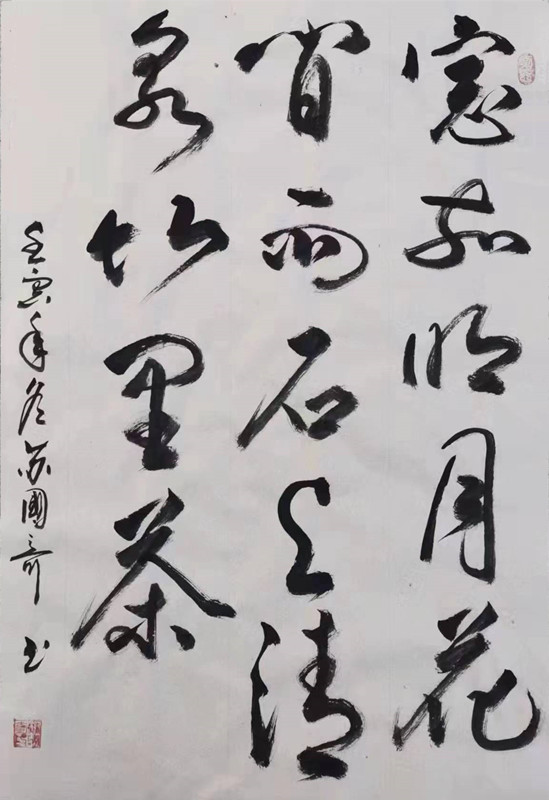 窓前明月花
間雨石上清
泉竹里茶
壬寅年冬苏國书